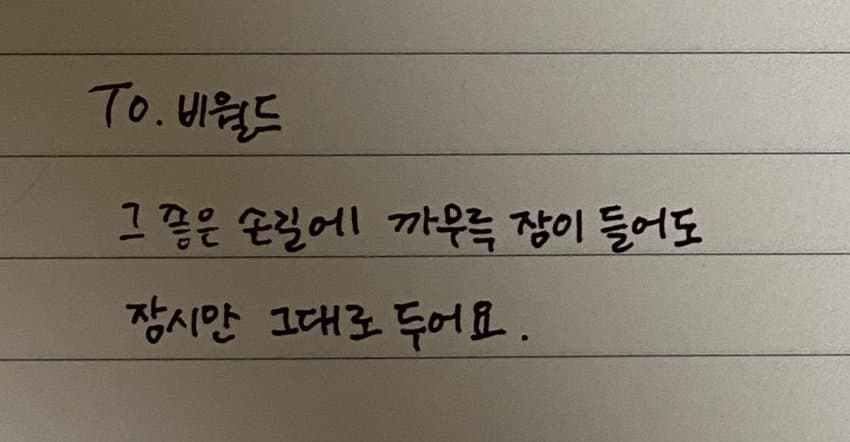 To. 비월드
그 좁은 손길에 까무륵 잠이 들어도
잠시만 그대로 두어요.